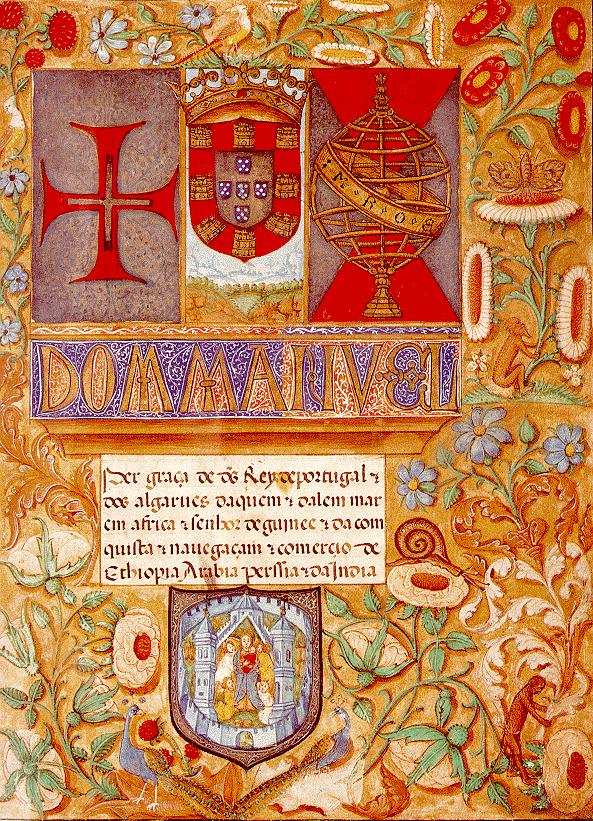 M R O
DOM MANVEL
Per graça de dõs Rey de portugal ⁊
dos algarues daquem ⁊ dalem mar
em africa ⁊ senhor de guinee ⁊ da com
quista ⁊ nauegaçam ⁊ comercio de
Ethiopia Arabia perssia ⁊ da India